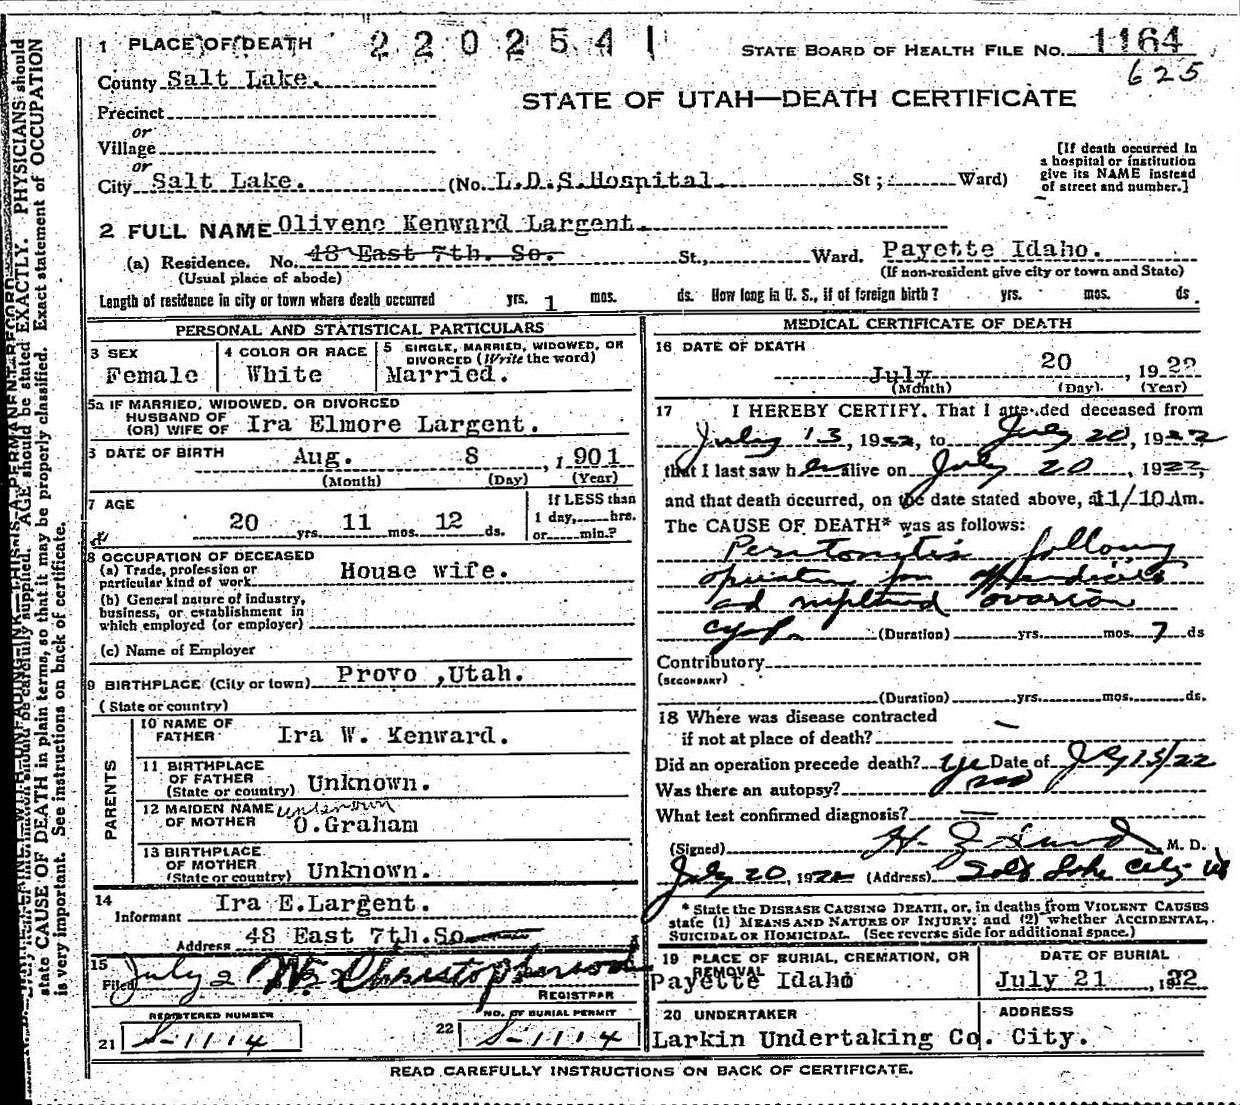 1 PLACE OF DEATH 2 2 0 2 5 4 1 STATE BOARD OF HEALTH FILE NO. 1164
625
County Salt Lake.
STATE OF UTAH—DEATH CERTIFICATE
Precinct
or
Village
or
City Salt Lake. (No. L.D.S.Hospital. St; Ward)
[If death occurred in
a hospital or institution
give its NAME instead
of street and number.]
2 FULL NAME Olivene Kenward Largent.
(a) Residence. No. 48 East 7th. So. St., Ward. Payette Idaho.
(Usual place of abode) (If non-resident give city or town and State)
Length of residence in city or town where death occurred yrs. 1 mos. ds. How long in U. S., if of foreign birth? yrs. mos. ds.
PERSONAL AND STATISTICAL PARTICULARS
3 SEX
Female
4 COLOR OR RACE
White
5 SINGLE, MARRIED, WIDOWED, OR
DIVORCED (Write the word)
Married.
5a IF MARRIED, WIDOWED, OR DIVORCED
HUSBAND OF
(OR) WIFE OF Ira Elmore Largent.
6 DATE OF BIRTH Aug. 8, 1901
(Month) (Day) (Year)
7 AGE
20 yrs. 11 mos. 12 ds.
If LESS than
1 day, hrs.
or min.?
8 OCCUPATION OF DECEASED
(a) Trade, profession or
particular kind of work House wife.
(b) General nature of industry,
business, or establishment in
which employed (or employer)
(c) Name of Employer
9 BIRTHPLACE (City or town) Provo ,Utah.
(State or country)
PARENTS
10 NAME OF
FATHER Ira W. Kenward.
11 BIRTHPLACE
OF FATHER
(State or country) Unknown.
12 MAIDEN NAME unknown
OF MOTHER O.Graham
13 BIRTHPLACE
OF MOTHER
(State or country) Unknown.
14
Informant Ira E.Largent.
Address 48 East 7th.So
15
Filed July 2 Christopherson
REGISTRAR
REGISTERED NUMBER
21 S-1114
NO. OF BURIAL PERMIT
22 S-1114
MEDICAL CERTIFICATE OF DEATH
16 DATE OF DEATH
July 20, 1922
(Month) (Day). (Year)
17 I HEREBY CERTIFY. That I attended deceased from
July 13, 1922, to July 20, 1922
that I last saw her alive on July 20, 1922,
and that death occurred, on the date stated above, at 11/10 Am.
The CAUSE OF DEATH* was as follows:
Peritonitis following
operation for appendicitis
and ruptured ovarian
cyst. (Duration) yrs. mos. 7 ds
Contributory
(SECONDARY)
(Duration) yrs. mos. ds.
18 Where was disease contracted
if not at place of death? —
Did an operation precede death? yes Date of July 13/22
Was there an autopsy? no
What test confirmed diagnosis? —
(Signed) M. D.
July 20, 1922 (Address) Salt Lake City U
* State the DISEASE CAUSING DEATH, or, in deaths from VIOLENT CAUSES
state (1) MEANS AND NATURE OF INJURY; and (2) whether ACCIDENTAL,
SUICIDAL OR HOMICIDAL. (See reverse side for additional space.)
19 PLACE OF BURIAL, CREMATION, OR
REMOVAL
Payette Idaho
DATE OF BURIAL
July 21, 1922
20 UNDERTAKER
Larkin Undertaking Co.
ADDRESS
City.
READ CAREFULLY INSTRUCTIONS ON BACK OF CERTIFICATE.
AGE should be stated EXACTLY. PHYSICIANS should
state CAUSE OF DEATH in plain terms, so that it may be properly classified. Exact statement of OCCUPATION
is very important. See instructions on back of certificate.